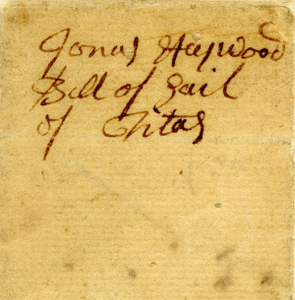 Jonas Haywood
Bill of Sail
of Titas